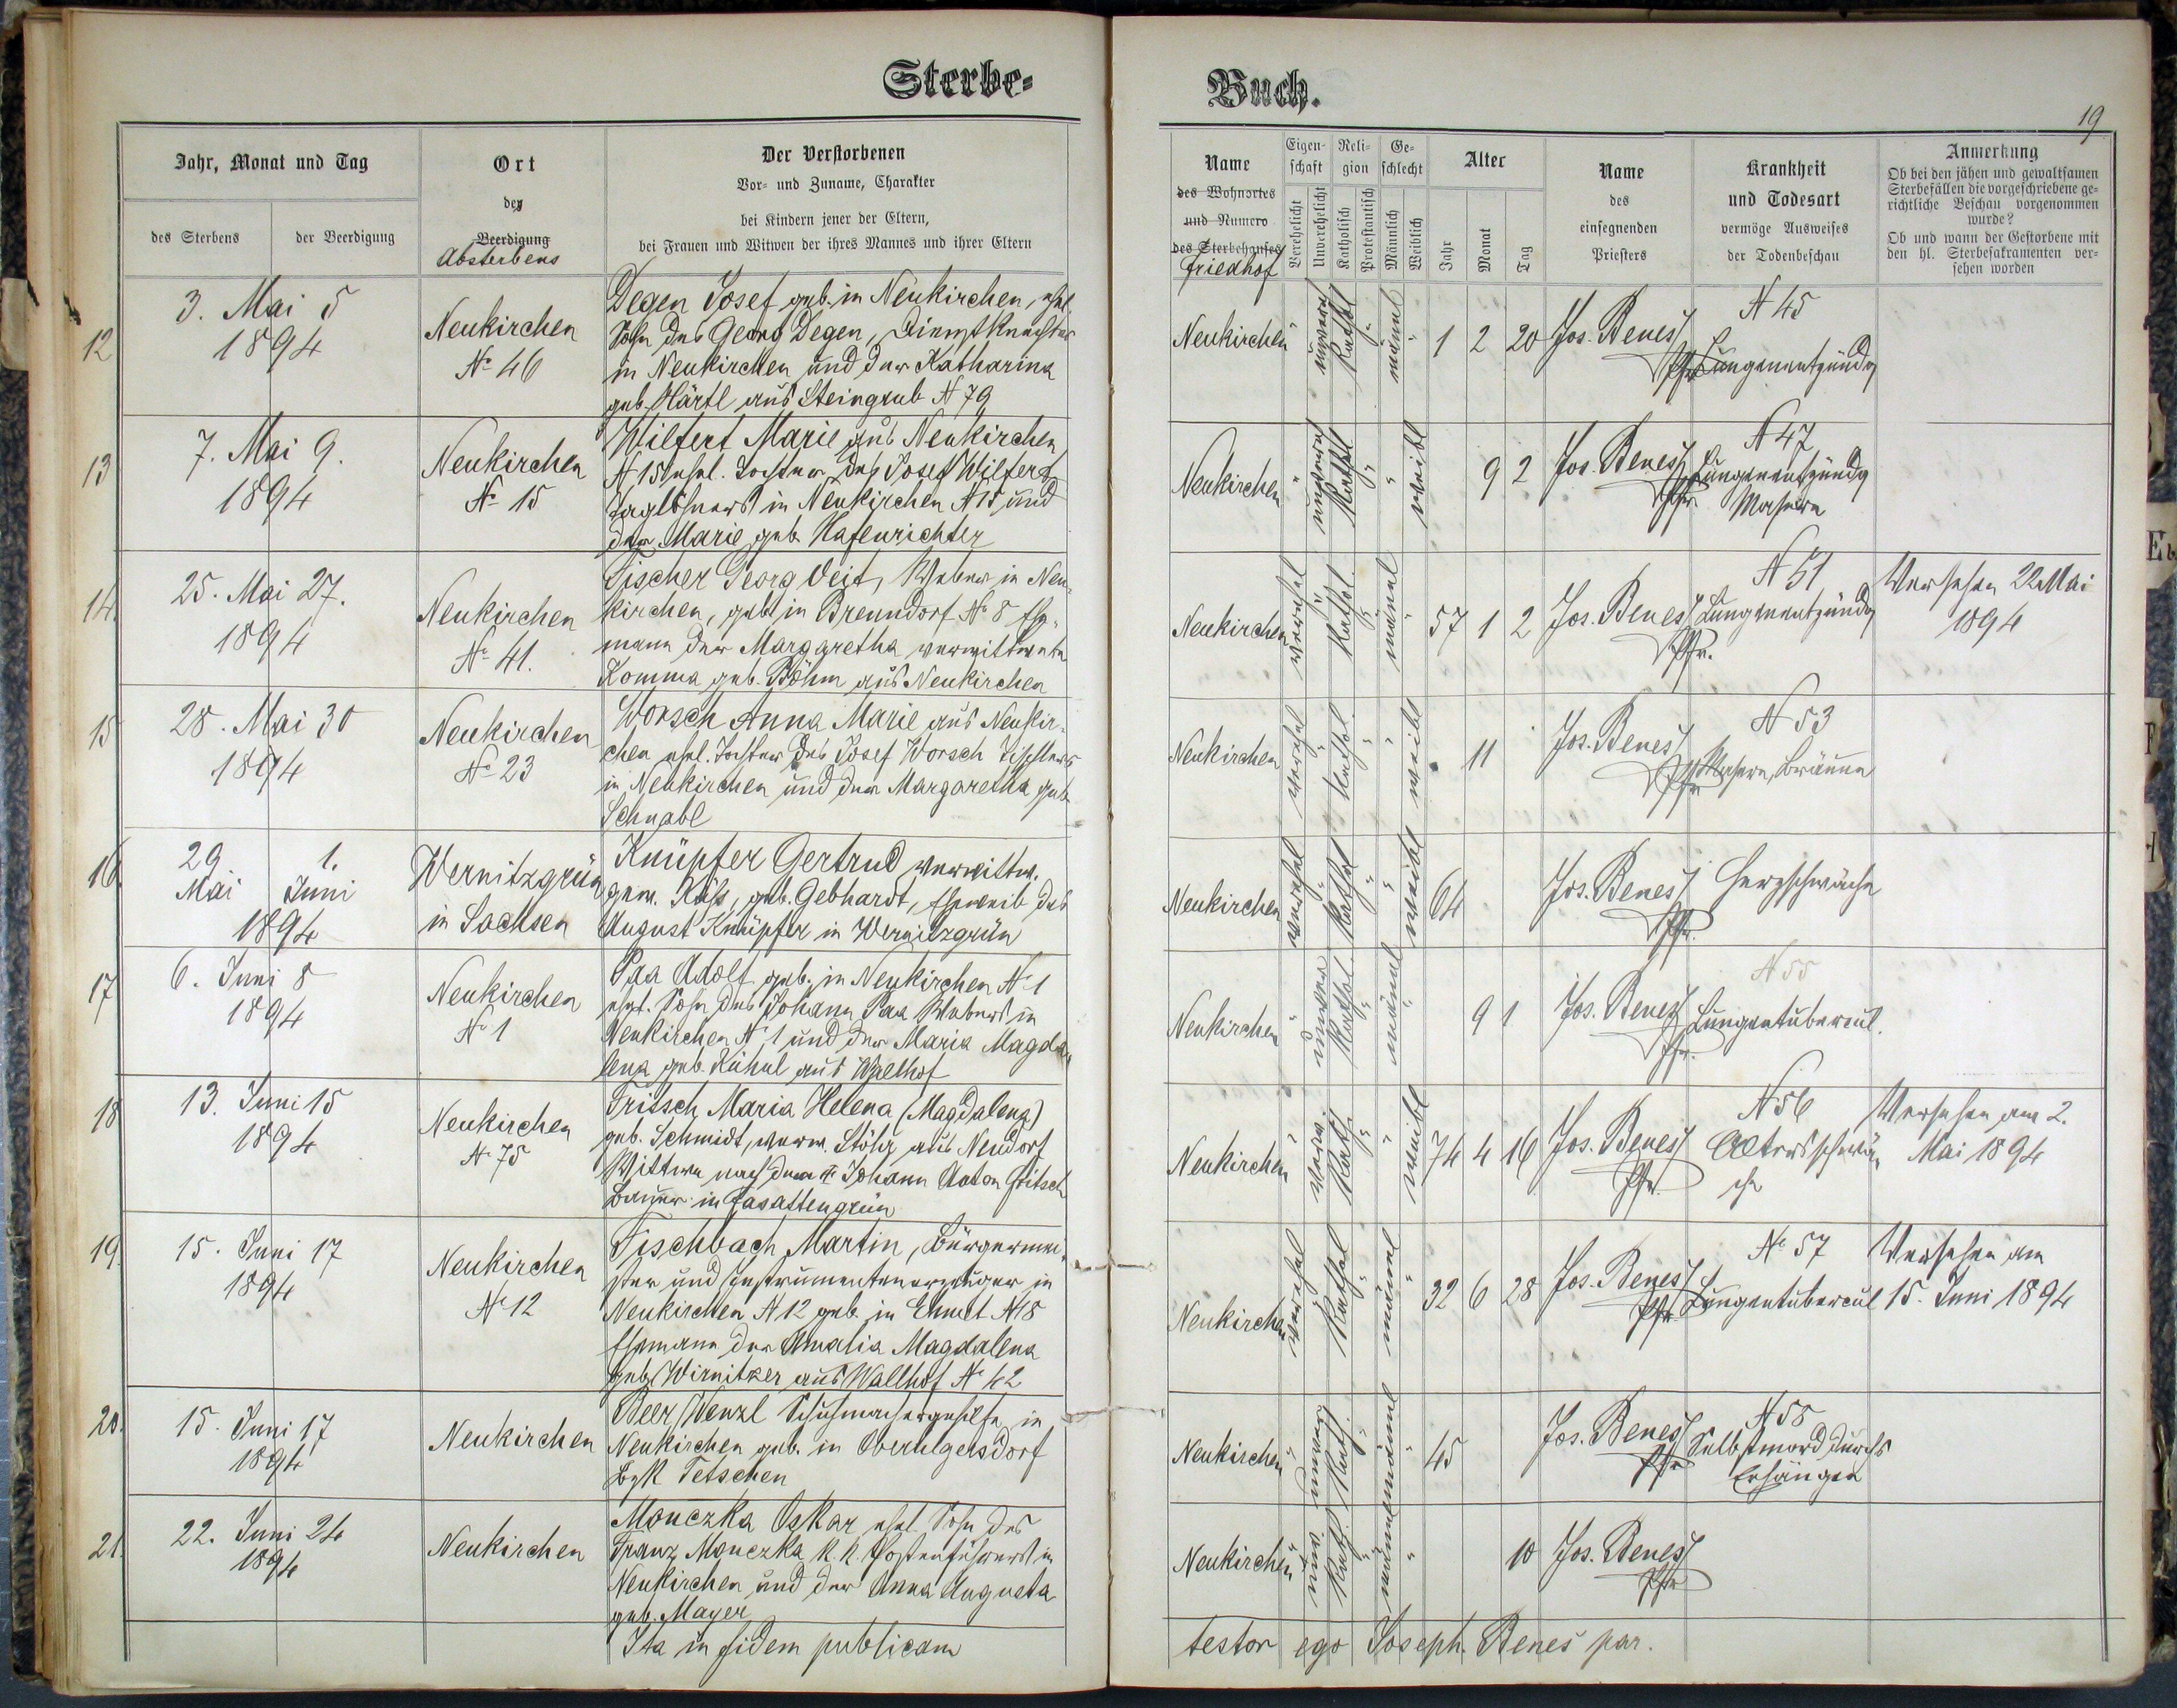 Sterbe-
Buch.
19
Jahr, Monat und Tag
des Sterbens
der Beerdigung
Ort
der
Beerdigung
Absterbens
Der Verstorbenen
Vor- und Zuname, Charakter
bei Kindern jener der Eltern,
bei Frauen und Witwen der ihres Mannes und ihrer Eltern
Name
des Wohnortes
und Numero
des Sterbehauses
Friedhof
Eigenschaft
Verehelicht
Unverehelicht
Religion
Katholisch
Protestantisch
Geschlecht
Männlich
Weiblich
Alter
Jahr
Monat
Tag
Name
des
einsegnenden
Priesters
Krankheit
und Todesart
vermöge Ausweises
der Todenbeschau
Anmerkung
Ob bei den jähen und gewaltsamen
Sterbefällen die vorgeschriebene ge-
richtliche Beschau vorgenommen
wurde?
Ob und wann der Gestorbene mit
den hl. Sterbesakramenten ver-
sehen worden
12
3. Mai 5
1894
Neukirchen
No 46
Degen Josef geb. in Neukirchen, ehel.
Sohn des Georg Degen, Dienstknechtes
in Neukirchen und der Katharina
geb. Härtl aus Steingrub N 79
Neukirchen " unvereh Kathol " männl " 1 2 20 Jos. Benes Pfr
N 45
Lungenentzündg
13
7. Mai 9.
1894
Neukirchen
No 15
Wilfert Marie aus Neukirchen
N 15 ehel. Tochter des Josef Wilfert
Taglöhners in Neukirchen N 15 und
der Marie geb. Hafenrichter
Neukirchen " unvereh Kathol " " weibl 9 2 Jos. Benes Pfr.
N 47
Lungenentzündg
Masern
14.
25. Mai 27.
1894
Neukirchen
No 41.
Fischer Georg Veit, Weber in Neu-
kirchen, gebt in Brenndorf No 8 Ehe-
mann der Margaretha verwittwete
Komma geb. Böhm aus Neukirchen
Neukirchen verehel " Kathol. " männl " 57 1 2 Jos. Benes Pfr.
N 51
Lungenentzündg
Versehen 22 Mai
1894
15
28. Mai 30
1894
Neukirchen
No 23
Worsch Anna Marie aus Neukir-
chen ehel. Tochter des Josef Worsch Tischlers
in Neukirchen und der Margaretha geb.
Schnabl
Neukirchen verehel " Kathol. " " weibl 11 Jos. Benes Pfr
N 53
Masern, Bräune
16.
29. 1.
Mai Juni
1894
Wernitzgrün
in Sachsen
Knüpfer Gertrud verwittw.
gew. geb. Gebhardt, Eheweib des
August Knüpfer in Wernitzgrün
Neukirchen verehel " Kathol " " weibl 64 Jos. Benes Pfr.
Herzschwäche
17
6. Juni 8
1894
Neukirchen
No 1
Paa Adolf geb. in Neukirchen No 1
ehel. Sohn des Johann Paa Webers in
Neukirchen No 1 und der Maria Magda-
lena geb. Kühnl aus Wallhof
Neukirchen " unver Kathol. " männl " 9 1 Jos. Benes Pfr.
N 55
Lungentubercul.
18
13. Juni 15
1894
Neukirchen
N 75
Fritsch Maria Helena (Magdalena)
geb. Schmidt, verw. Stöhr aus Neudorf
Wittwe nach dem II Johann Anton Fritsch
Bauer in Fasattengrün
Neukirchen " Kath. " " weibl 74 4 16 Jos. Benes Pfr.
N 56
Altersschwä-
che
Versehen am 2.
Mai 1894
19.
15. Juni 17
1894
Neukirchen
No 12
Fischbach Martin, Bürgermei-
ster und Instrumentenerzeuger in
Neukirchen N 12 geb. in Ehmet N 18
Ehemann der Amalia Magdalena
geb. Wirnitzer aus Wallhof No 42
Neukirchen verehel " Kathol " männl " 32 6 28 Jos. Benes Pfr
No 57
Lungentubercul
Versehen am
15. Juni 1894
20.
15. Juni 17
1894
Neukirchen
Beer Wenzl Schuhmachergehilfe in
Neukirchen geb. in Oberulgersdorf
Bzk Tetschen
Neukirchen " unver Kath. " männl " 45 Jos. Benes Pfr
N 58
Selbstmord durchs
Erhängen
21.
22. Juni 24
1894
Neukirchen
Monczka Oskar ehel Sohn des
Franz Monczka k. k. Postenführers in
Neukirchen und der Anna Augusta
geb. Mayer
Neukirchen " unv. Kath. " männl " 10 Jos. Benes Pfr
Ita in fidem publicam
testor ego Joseph. Benes par.